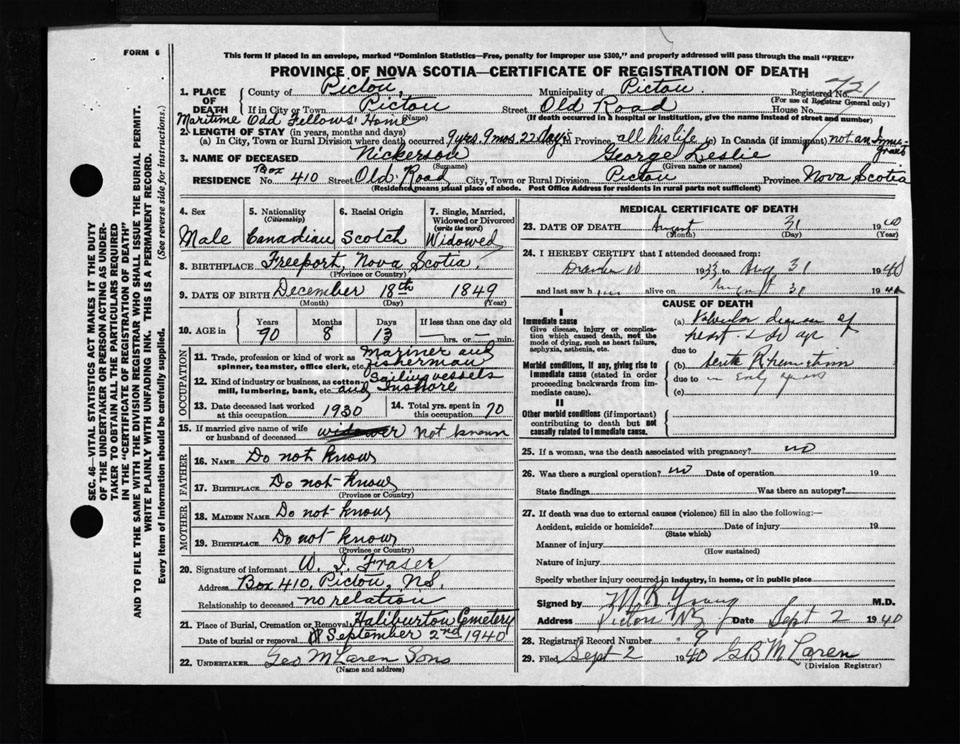 FORM 6
This form if placed in an envelope, marked "Dominion Statistics—Free, penalty for improper use $300," and properly addressed will pass through the mail "FREE"
PROVINCE OF NOVA SCOTIA—CERTIFICATE OF REGISTRATION OF DEATH
1. PLACE OF DEATH County of Pictou, Municipality of Pictou. Registered No. 721
(For use of Registrar General only)
If in City or Town Pictou Street Old Road House No.
(Name) (If death occurred in a hospital or institution, give the name instead of street and number)
Maritime Odd Fellows' Home
2. LENGTH OF STAY (in years, months and days)
(a) In City, Town or Rural Division where death occurred 9 yrs. 9 mos. 22 days In Province all his life (c) In Canada (if immigrant) not an Immigrant
3. NAME OF DECEASED Nickerson George Leslie
(Surname) (Given name or names)
RESIDENCE No. Box 410 Street Old Road City, Town or Rural Division Pictou Province Nova Scotia
(Residence means usual place of abode. Post Office Address for residents in rural parts not sufficient)
4. Sex Male
5. Nationality (Citizenship) Canadian
6. Racial Origin Scotch
7. Single, Married, Widowed or Divorced (write the word) Widowed
8. BIRTHPLACE Freeport, Nova Scotia.
(Province or Country)
9. DATE OF BIRTH December 18th 1849
(Month) (Day) (Year)
10. AGE IN Years 90 Months 8 Days 13 If less than one day old hrs. or min.
OCCUPATION
11. Trade, profession or kind of work as spinner, teamster, office clerk, etc. Mariner and fisherman
12. Kind of industry or business, as cotton-mill, lumbering, bank, etc. Sailing vessels and Inshore
13. Date deceased last worked at this occupation 1930
14. Total yrs. spent in this occupation 70
15. If married give name of wife or husband of deceased widower Not known
FATHER
16. NAME Do not know
17. BIRTHPLACE Do not know
(Province or Country)
MOTHER
18. MAIDEN NAME Do not know
19. BIRTHPLACE Do not know
(Province or Country)
20. Signature of informant W. I. Fraser
Address Box 410, Pictou, N.S.
Relationship to deceased no relation
21. Place of Burial, Cremation or Removal Haliburton Cemetery
Date of burial or removal September 2nd 1940
22. UNDERTAKER Geo McLaren Sons
(Name and address)
MEDICAL CERTIFICATE OF DEATH
23. DATE OF DEATH August 31 1940
(Month) (Day) (Year)
24. I HEREBY CERTIFY that I attended deceased from:
10 1933 to Aug 31 1940
and last saw him alive on August 31 1940
CAUSE OF DEATH
I
Immediate cause
Give disease, injury or complication which caused death, not the mode of dying, such as heart failure, asphyxia, asthenia, etc.
(a) Valvular disease of heart & old age
due to
Morbid conditions, if any, giving rise to immediate cause (stated in order proceeding backwards from immediate cause).
(b) Acute Rheumatism
due to in Early years
(c)
II
Other morbid conditions (if important) contributing to death but not causally related to immediate cause.
25. If a woman, was the death associated with pregnancy? no
26. Was there a surgical operation? no Date of operation 19
State findings Was there an autopsy?
27. If death was due to external causes (violence) fill in also the following:—
Accident, suicide or homicide? Date of injury 19
(State which)
Manner of injury
(How sustained)
Nature of injury
Specify whether injury occurred in industry, in home, or in public place
Signed by M R Young M.D.
Address Pictou NS Date Sept 2 1940
28. Registrar's Record Number 9
29. Filed Sept 2 1940 G B McLaren
(Division Registrar)
SEC. 46—VITAL STATISTICS ACT MAKES IT THE DUTY
OF THE UNDERTAKER OR PERSON ACTING AS UNDER-
TAKER TO OBTAIN ALL THE PARTICULARS REQUIRED
IN THE "CERTIFICATE OF REGISTRATION OF DEATH"
AND TO FILE THE SAME WITH THE DIVISION REGISTRAR WHO SHALL ISSUE THE BURIAL PERMIT.
WRITE PLAINLY WITH UNFADING INK. THIS IS A PERMANENT RECORD.
Every item of Information should be carefully supplied. (See reverse side for instructions.)